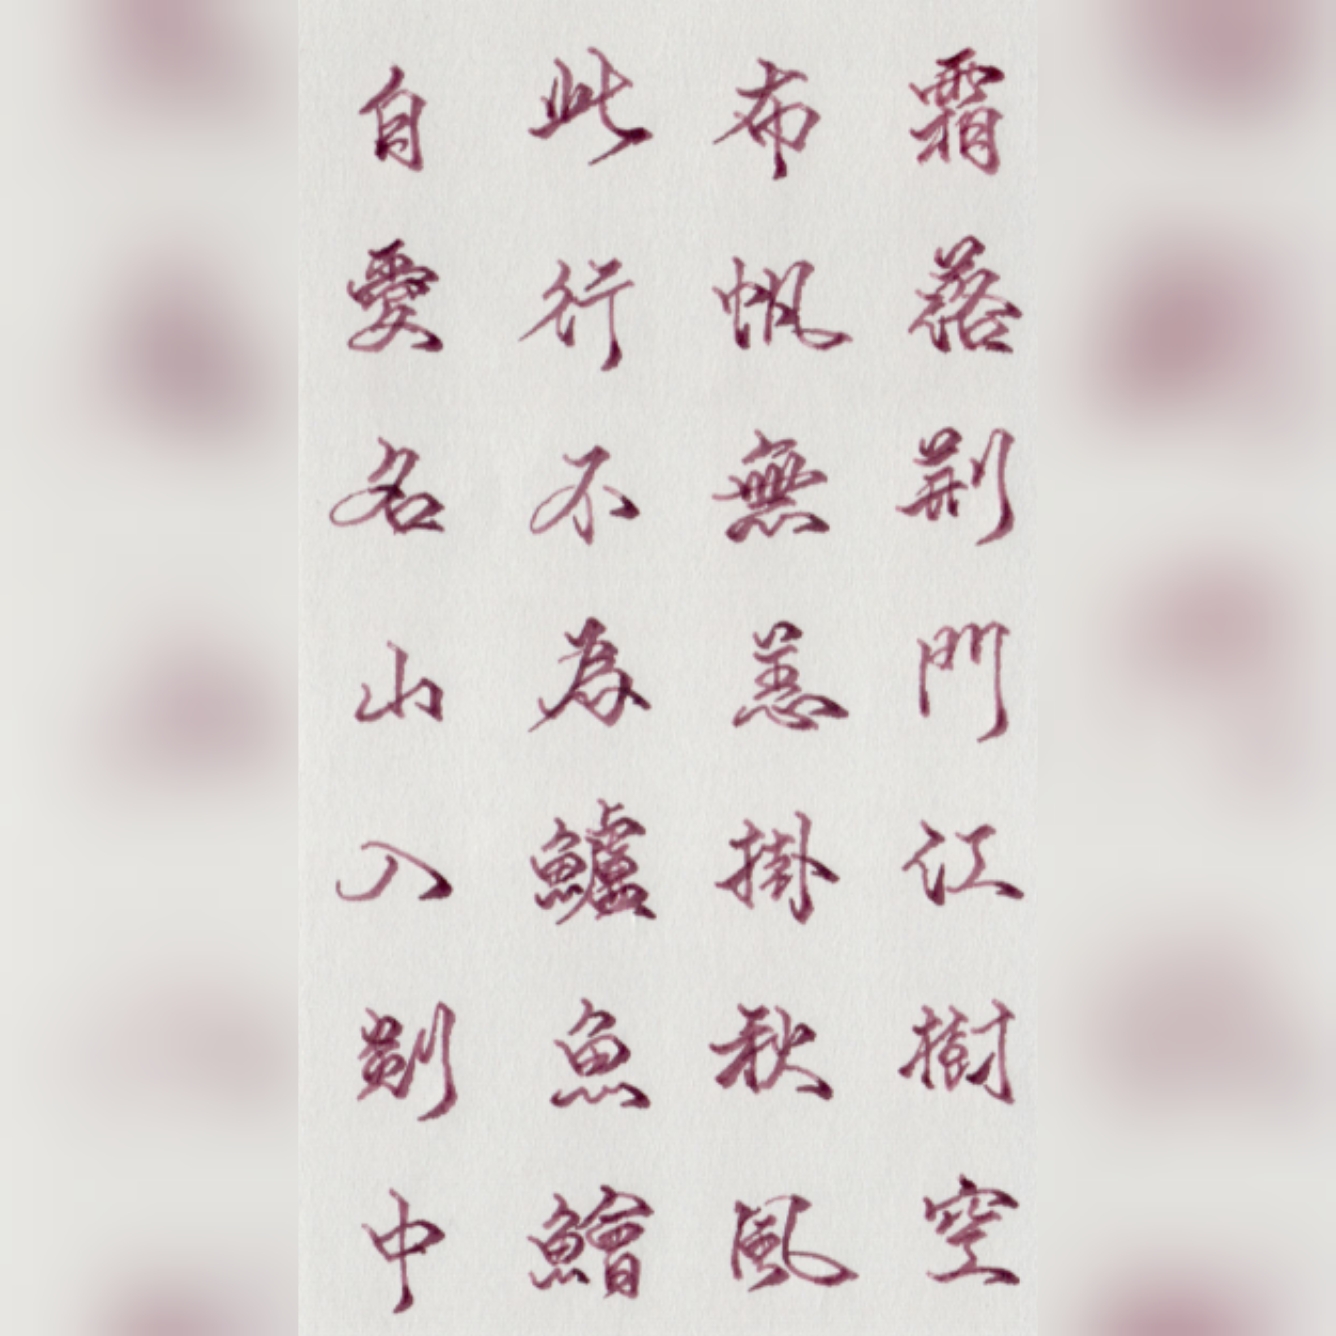 霜落荆門江樹空
布帆無恙掛秋風
此行不為鱸魚鱠
自愛名山入剡中